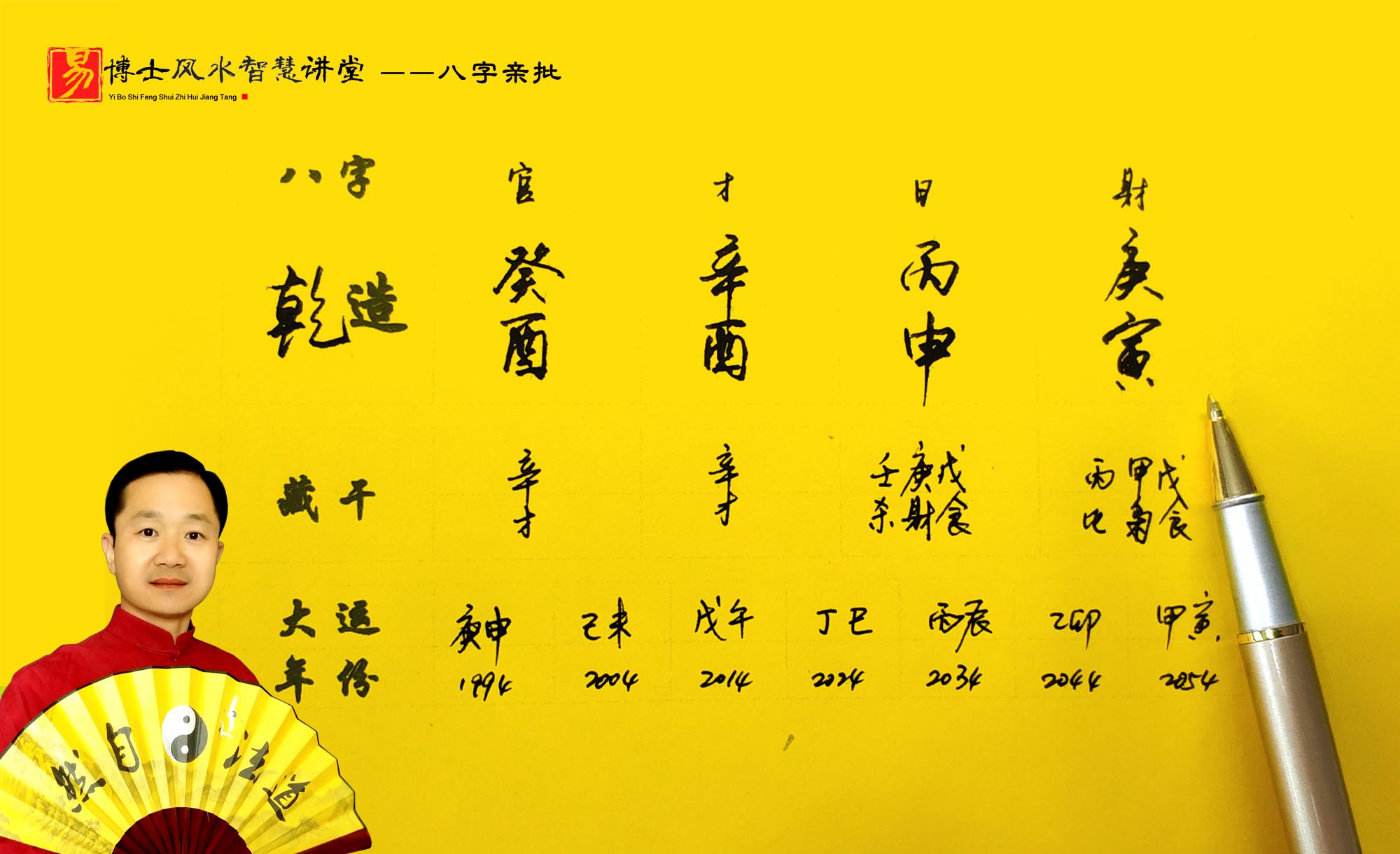 易博士风水智慧讲堂 ——八字亲批
Yi Bo Shi Feng Shui Zhi Hui Jiang Tang
八字 官 才 日 财
乾造 癸酉 辛酉 丙申 庚寅
藏干 辛 辛 壬庚戊 丙甲戊
才 才 杀财食 比 食
大运 庚申 己未 戊午 丁巳 丙辰 乙卯 甲寅
年份 1994 2004 2014 2024 2034 2044 2054
然自法道